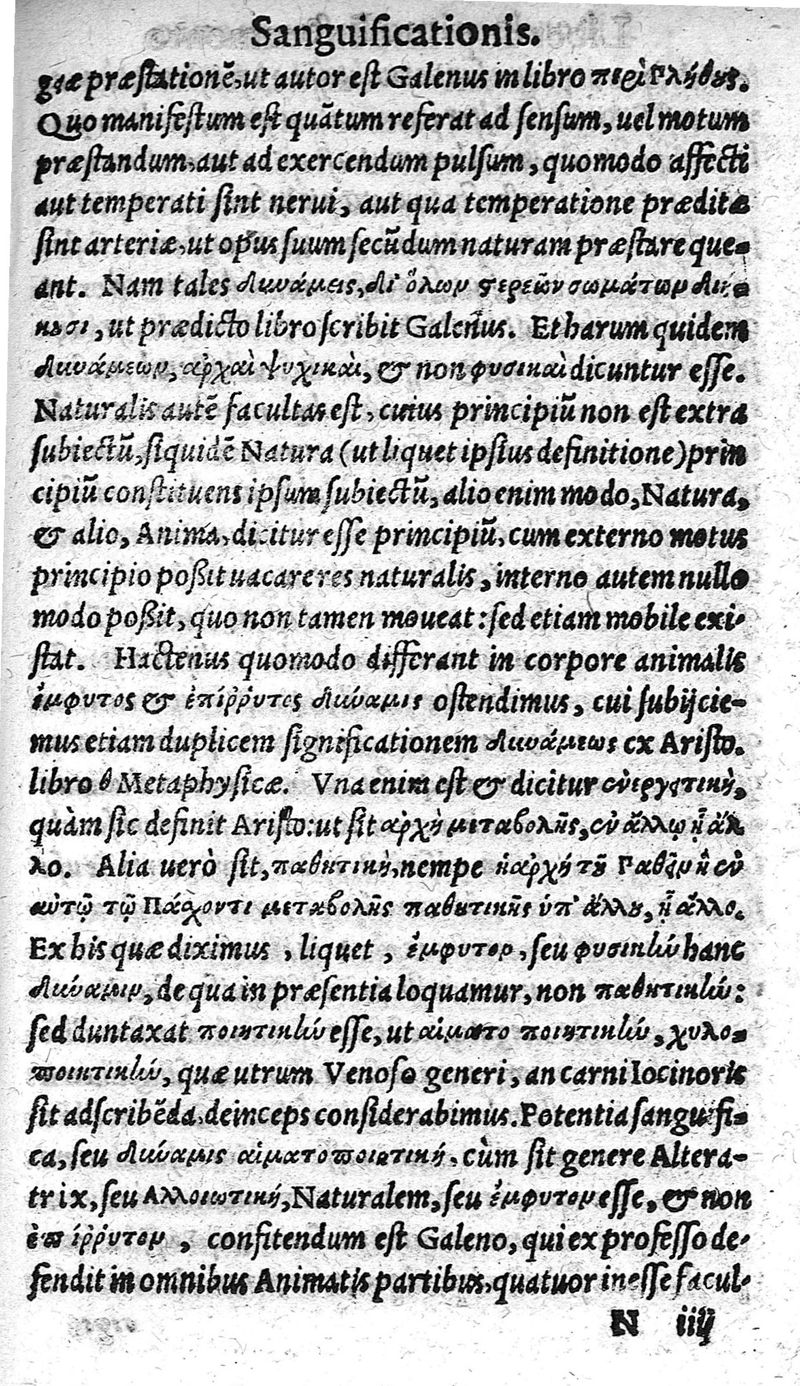 Sanguificationis.
giæ præstationē, ut autor est Galenus in libro περὶ Πλήθους.
Quo manifestum est quātum referat ad sensum, uel motum
præstandum, aut ad exercendum pulsum, quomodo affecti
aut temperati sint nerui, aut qua temperatione præditæ
sint arteriæ, ut opus suum secūdum naturam præstare que-
ant. Nam tales δυνάμεις, δι' ὅλων στερεῶν σωμάτων διή-
κουσι, ut prædicto libro scribit Galenus. Et harum quidem
δυνάμεων, ἀρχαὶ ψυχικαὶ, & non φυσικαὶ dicuntur esse.
Naturalis autē facultas est, cuius principiū non est extra
subiectū, siquidē Natura (ut liquet ipsius definitione) prin
cipiū constituens ipsum subiectū, alio enim modo, Natura,
& alio, Anima, dicitur esse principiū, cum externo motus
principio poßit uacare res naturalis, interno autem nullo
modo poßit, quo non tamen moueat: sed etiam mobile exi-
stat. Hactenus quomodo differant in corpore animalis
ἔμφυτος & ἐπίῤῥυτος δύναμις ostendimus, cui subijcie-
mus etiam duplicem significationem δυνάμεως ex Aristo.
libro θ Metaphysicæ. Vna enim est & dicitur ἐνεργετικὴ,
quàm sic definit Aristo: ut sit ἀρχὴ μεταβολῆς, ἐν ἄλλῳ ἢ ἄλ
λο. Alia uerò sit, παθητικὴ, nempe ἡ ἀρχή τοῦ Παθεῖν ἢ ἐν
αὐτῷ τῷ Πάσχοντι μεταβολῆς παθητικῆς ὑπ' ἄλλου, ἢ ἄλλο.
Ex his quæ diximus, liquet, ἔμφυτον, seu φυσικὴν hanc
δύναμιν, de qua in præsentia loquamur, non παθητικὴν:
sed duntaxat ποιητικὴν esse, ut αἱματο ποιητικὴν, χυλο-
ποιητικὴν, quæ utrum Venoso generi, an carni Iocinoris
sit adscribēda, deinceps considerabimus. Potentia sanguifi-
ca, seu δύναμις αἱματοποιητική, cùm sit genere Altera-
trix, seu Αλλοιωτική, Naturalem, seu ἔμφυτον esse, & non
ἐπίῤῥυτον, confitendum est Galeno, qui ex professo de-
fendit in omnibus Animatis partibus, quatuor inesse facul-
N iiij